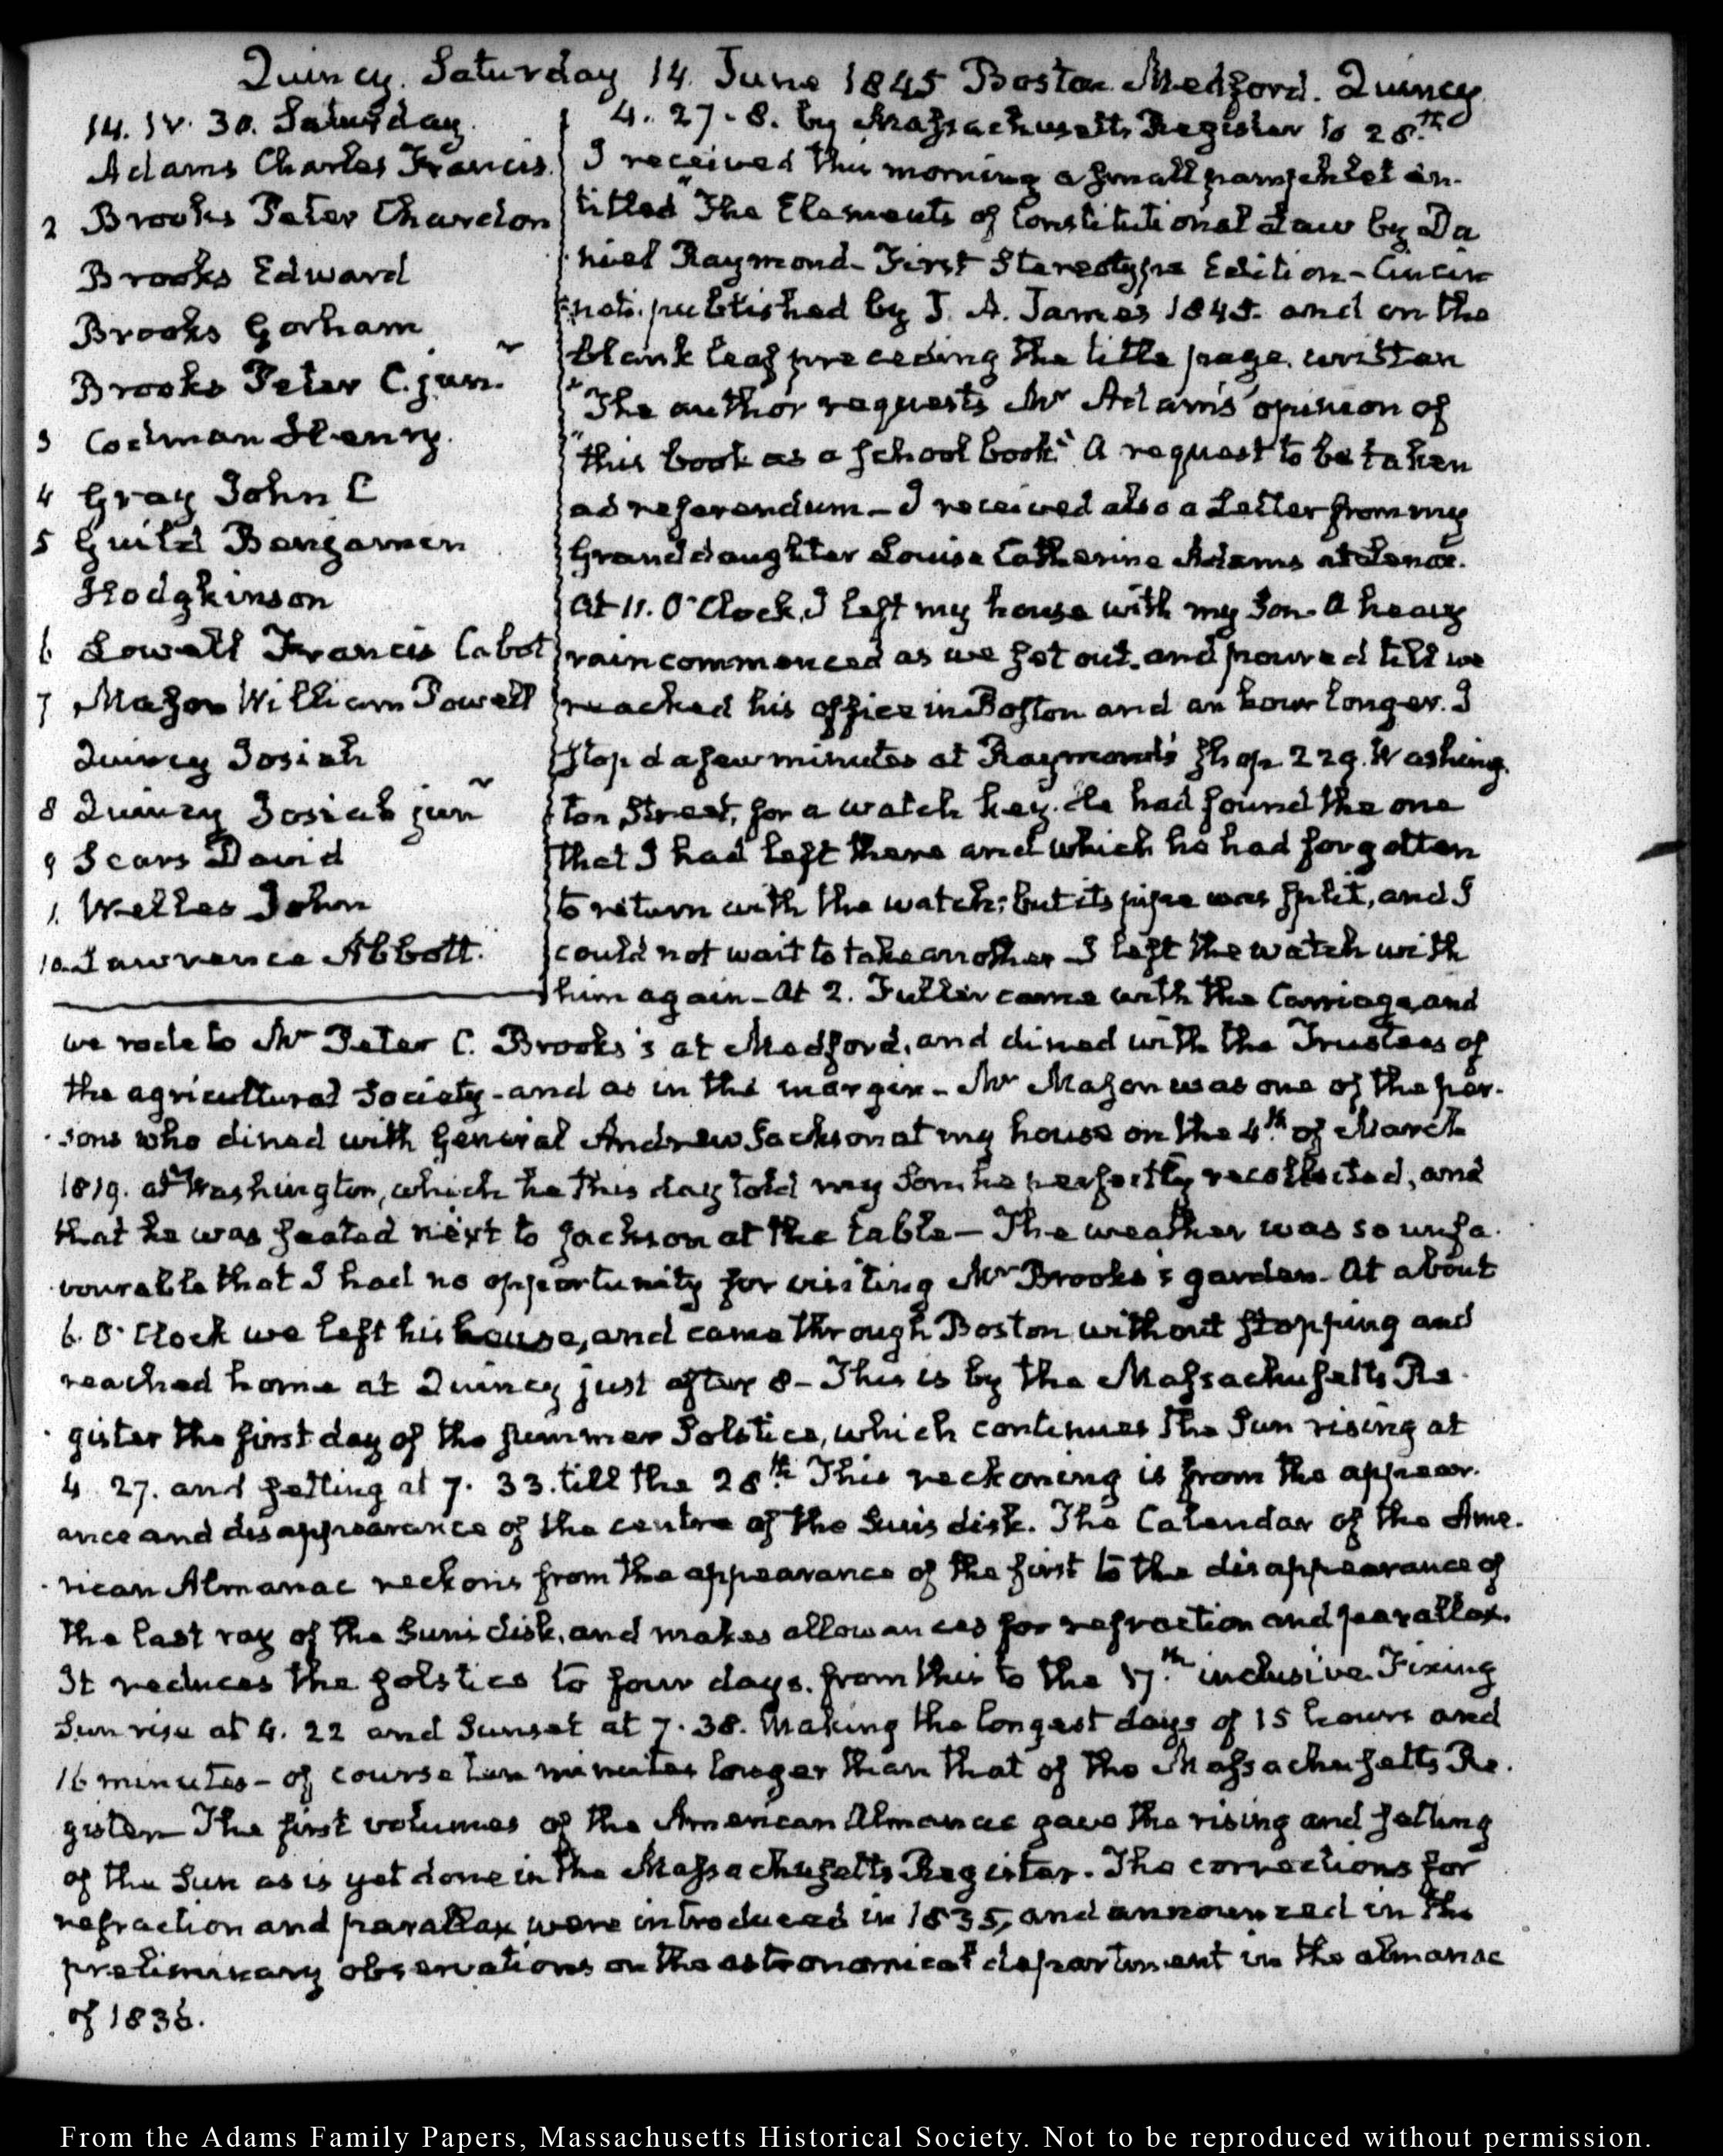 Quincy. Saturday 14. June 1845 Boston. Medford. Quincy
14. IV. 30. Saturday.
Adams Charles Francis.
2 Brooks Peter Chardon
Brooks Edward
Brooks Gorham
Brooks Peter C. junr.
3 Codman Henry.
4 Gray John C
5 Guild Benjamin
Hodgkinson
6 Lowell Francis Cabot
7 Mason William Powell
Quincy Josiah
8 Quincy Josiah junr
9 Sears David
1. Welles John
10. Lawrence Abbott.
4. 27-8. by Massachusetts Register to 28.th
I received this morning a small pamphlet in-
titled "The Elements of Constitutional Law by Da
niel Raymond- First Stereotype Edition- Cincin
nati. published by J. A. James 1845. and on the
blank leaf preceding the title page. written
"The author requests Mr Adams's opinion of
"this book as a school book" A request to be taken
ad referendum- I received also a Letter from my
Granddaughter Louisa Catherine Adams at Lenox.
At 11. O'Clock, I left my house with my Son- A heavy
rain commenced as we set out. and poured till we
reached his office in Boston and an hour longer. I
stop'd a few minutes at Raymond's shop 229. Washing-
ton Street, for a watch key. He had found the one
that I had left there and which he had forgotten
to return with the watch; but its pipe was split, and I
could not wait to take another- I left the watch with
him again- At 2. Fuller came with the Carriage, and
we rode to Mr Peter C. Brooks's at Medford, and dined with the Trustees of
the agricultural Society- and as in the margin- Mr Mason was one of the per-
sons who dined with General Andrew Jackson at my house on the 4.th of March
1819. at Washington, which he this day told my Son, he perfectly recollected, and
that he was seated next to Jackson at the table- The weather was so unfa-
vourable that I had no opportunity for visiting Mr Brooks's garden- At about
6. O'Clock we left his house, and came through Boston without stopping and
reached home at Quincy just after 8- This is by the Massachusetts Re-
gister the first day of the summer Solstice, which continues the Sun rising at
4. 27. and setting at 7. 33. till the 28.th This reckoning is from the appear-
ance and disappearance of the centre of the Sun's disk. The Calendar of the Ame-
rican Almanac reckons from the appearance of the first to the disappearance of
the last ray of the Sun's disk, and makes allowances for refraction and parallax.
It reduces the solstice to four days. from this to the 17.th inclusive. Fixing
Sun rise at 4. 22 and Sunset at 7. 38. Making the longest days of 15 hours and
16 minutes- of course ten minutes longer than that of the Massachusetts Re-
gister- The first volumes of the American Almanac gave the rising and setting
of the Sun as is yet done in the Massachusetts Register. The corrections for
refraction and parallax were introduced in 1835, and announced in the
preliminary observations on the astronomical department in the almanac
of 1836.
From the Adams Family Papers, Massachusetts Historical Society. Not to be reproduced without permission.